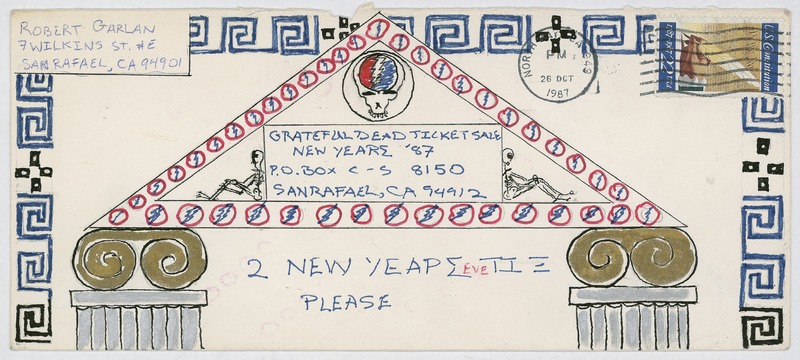 ROBERT GARLAN
7 WILKINS ST. #E
SANRAFAEL, CA 94901
PM
26 OCT
1987
US Constitution
22
GRATEFUL DEAD TICKET SALE
NEW YEARΣ '87
P.O. BOX C-S 8150
SANRAFAEL, CA 94912
2 NEW YEAPΣ EVE TIΞ
PLEASE